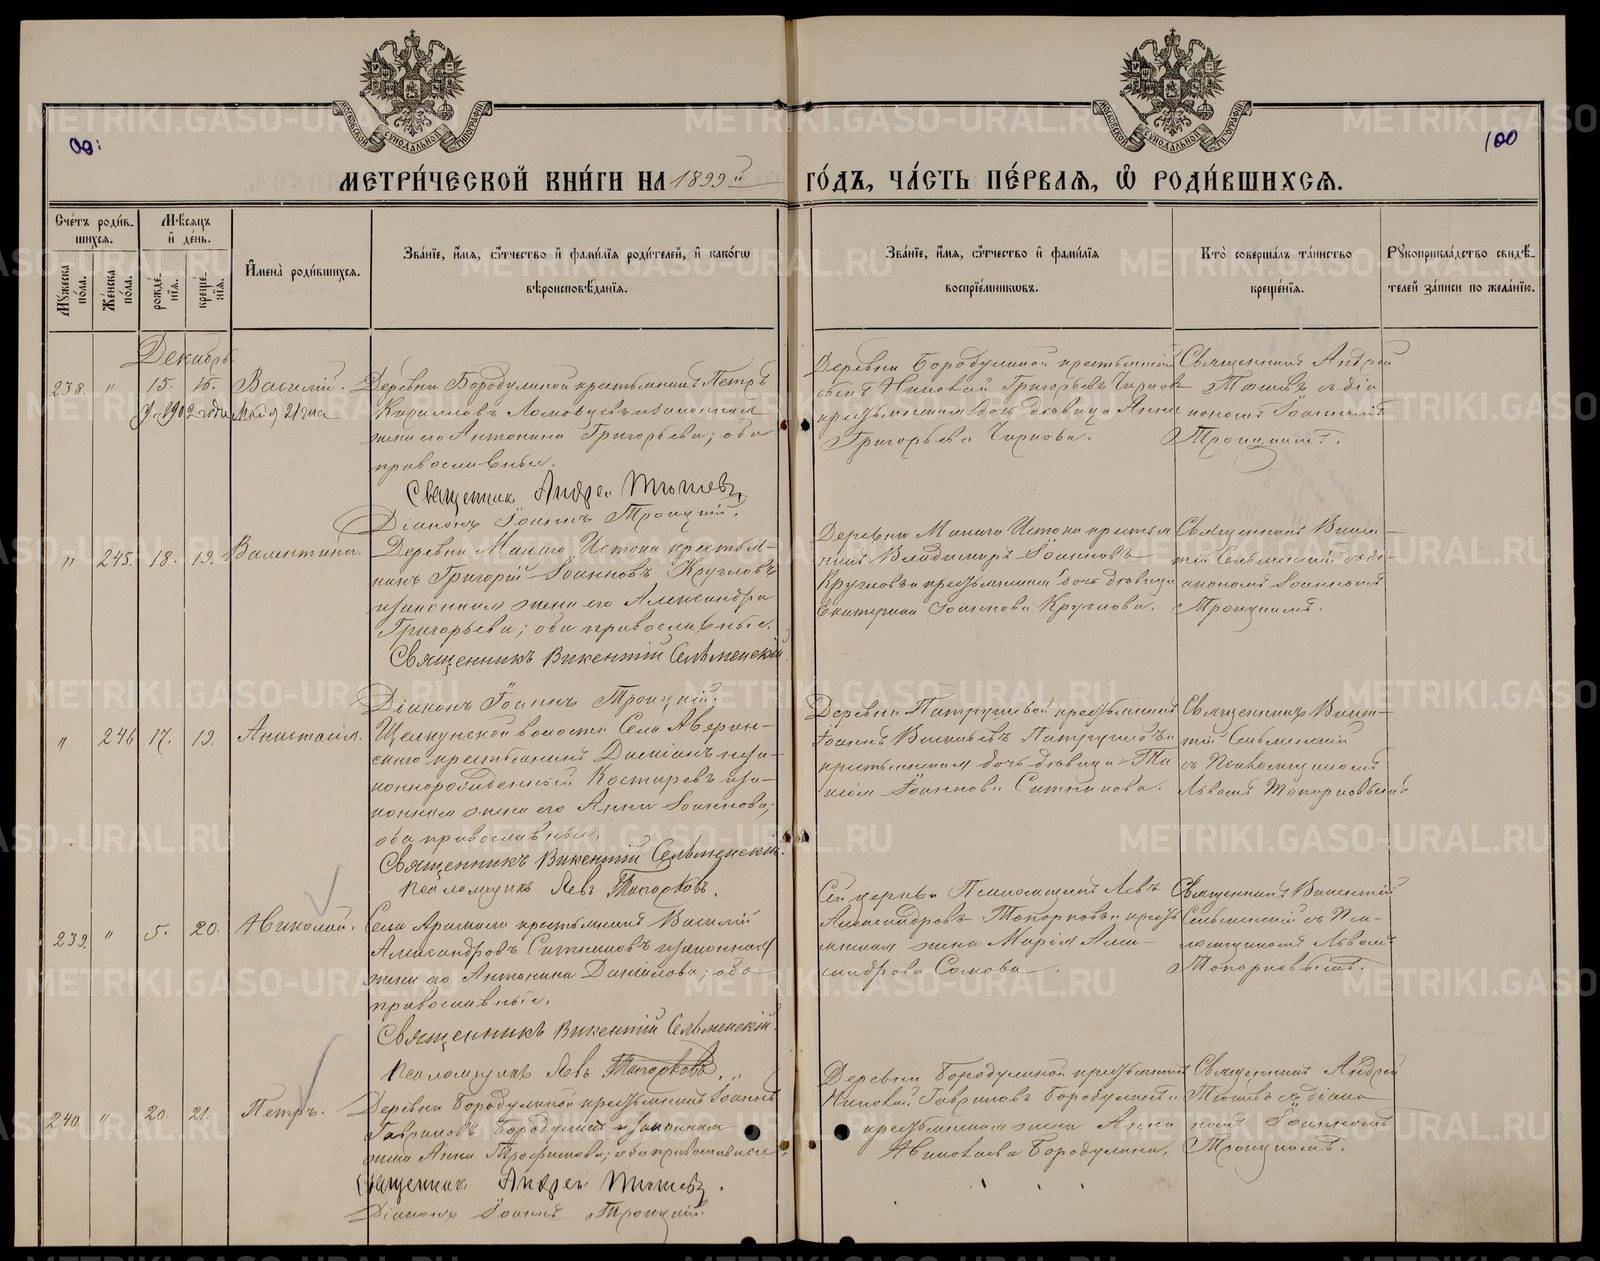 МЕТРИЧЕСКОЙ КНИГИ НА 1899 й ГОДЪ, ЧАСТЬ ПЕРВАЯ, Ѡ РОДИВШИХСЯ.
100
Счетъ родив-
шихся.
Мужеска пола.
Женска пола.
Мѣсяцъ и день.
рожде-
нія.
креще-
нія.
Имена родившихся.
Званіе, имя, ѿчество и фамилія родителей, и какого
вѣроисповѣданія.
Званіе, имя, ѿчество и фамилія
воспріемниковъ.
Кто совершалъ таинство
крещенія.
Рукоприкладство свидѣ-
телей записи по желанію.
Декабрь
238. " 15. 16. Василій.
Деревни Бородулиной крестьянинъ Петръ
Кирилловъ
жена его Антонина Григорьева; оба
православные.
Священник Андрей
Діаконъ Іоаннъ Троицкій.
Деревни Бородулиной крестьянскій
сынъ Николай Григорьевъ
крестьянская дочь дѣвица Анна
Григорьева
Священникъ Андрей
съ діа
кономъ Іоанномъ
Троицкимъ.
" 245. 18. 19. Валентина.
Деревни Малаго Истока крестья-
нинъ Григорій Іоанновъ Кругловъ
и законная жена его Александра
Григорьева; оба православные.
Священникъ Викентій Сельменскій
Діаконъ Іоаннъ Троицкій.
Деревни Малаго Истока крестья
нинъ Владимиръ Іоанновъ
Кругловъ и крестьянская дочь дѣвица
Екатерина Іоаннова Круглова.
Священникъ Викен-
тій Сельменскій съ ді-
акономъ Іоанномъ
Троицкимъ.
" 246 17. 19. Анастасія.
Щелкунской волости Села Аверин-
скаго крестьянинъ Даміанъ неза-
коннорожденный Костаревъ и за-
конная жена его Анна Іоаннова;
оба православные.
Священникъ Викентій Сельменскій.
Псаломщикъ Левъ Топорковъ.
Деревни Патрушевой крестьянинъ
Іоаннъ Васильевъ Патрушевъ и
крестьянская дочь дѣвица Та
Іоаннова Ситникова.
Священникъ Викен-
тій Сельменскій
съ Псаломщикомъ
Львомъ Топорковымъ.
239. " 5. 20. Николай.
Села Арамиля крестьянинъ Василій
Александровъ Ситниковъ и законная
жена его Антонина Даніилова; оба
православные.
Священникъ Викентій Сельменскій.
Псаломщикъ Левъ Топорковъ.
Псаломщикъ Левъ
Александровъ Топорковъ и кресть
янская жена Марія Алек-
сандрова
Священникъ Викентій
Сельменскій съ Пса-
ломщикомъ Львомъ
Топорковымъ.
240. " 20. 21. Петръ.
Деревни Бородулиной крестьянинъ Іоаннъ
Гавриловъ Бородулинъ и законная
жена Анна Трофимова; оба православные.
Священник Андрей
Діаконъ Іоаннъ Троицкій.
Деревни Бородулиной крестьянинъ
Николай Гавриловъ Бородулинъ и
крестьянская жена Анна
Николаева Бородулина.
Священникъ Андрей
съ діако
номъ Іоанномъ
Троицкимъ.
METRIKI.GASO-URAL.RU